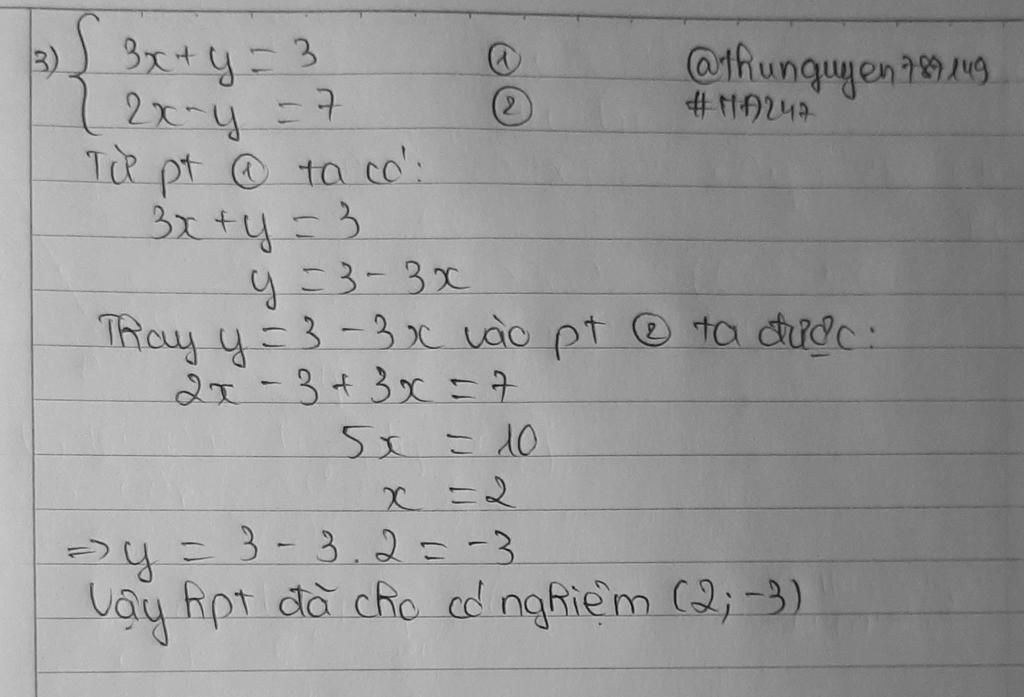 3) { 3x + y = 3 ① @thunguyen789149
2x - y = 7 ② #MA247
Từ pt ① ta có:
3x + y = 3
y = 3 - 3x
Thay y = 3 - 3x vào pt ② ta được:
2x - 3 + 3x = 7
5x = 10
x = 2
=> y = 3 - 3 . 2 = -3
Vậy hpt đã cho có nghiệm (2; -3)